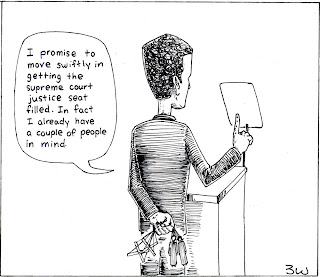 I promise to
move swiftly in
getting the
supreme court
justice seat
filled. In fact
I already have
a couple of people
in mind.
3W